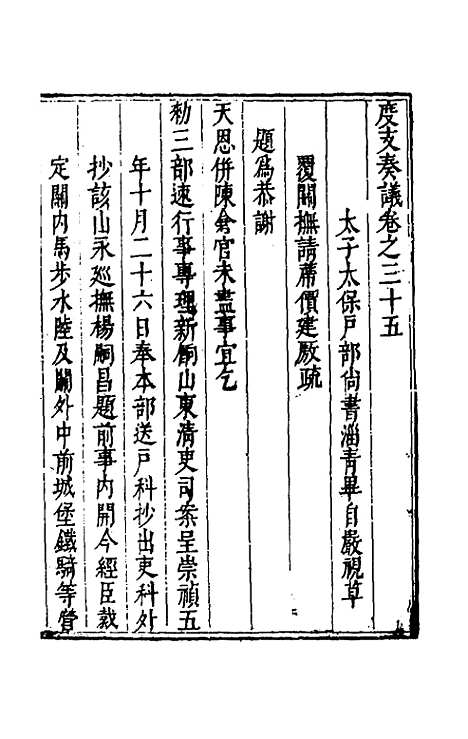 度支奏議卷之三十五
太子太保戶部尚書淄青畢自嚴視草
覆關撫請蓆價建厫疏
題爲恭謝
天恩併陳倉官未盡事宜乞
勑三部速行事專理新餉山東清吏司案呈崇禎五
年十月二十六日奉本部送戶科抄出吏科外
抄該山永巡撫楊嗣昌題前事內開今經臣裁
定關內馬步水陸及關外中前城堡鐵騎等營